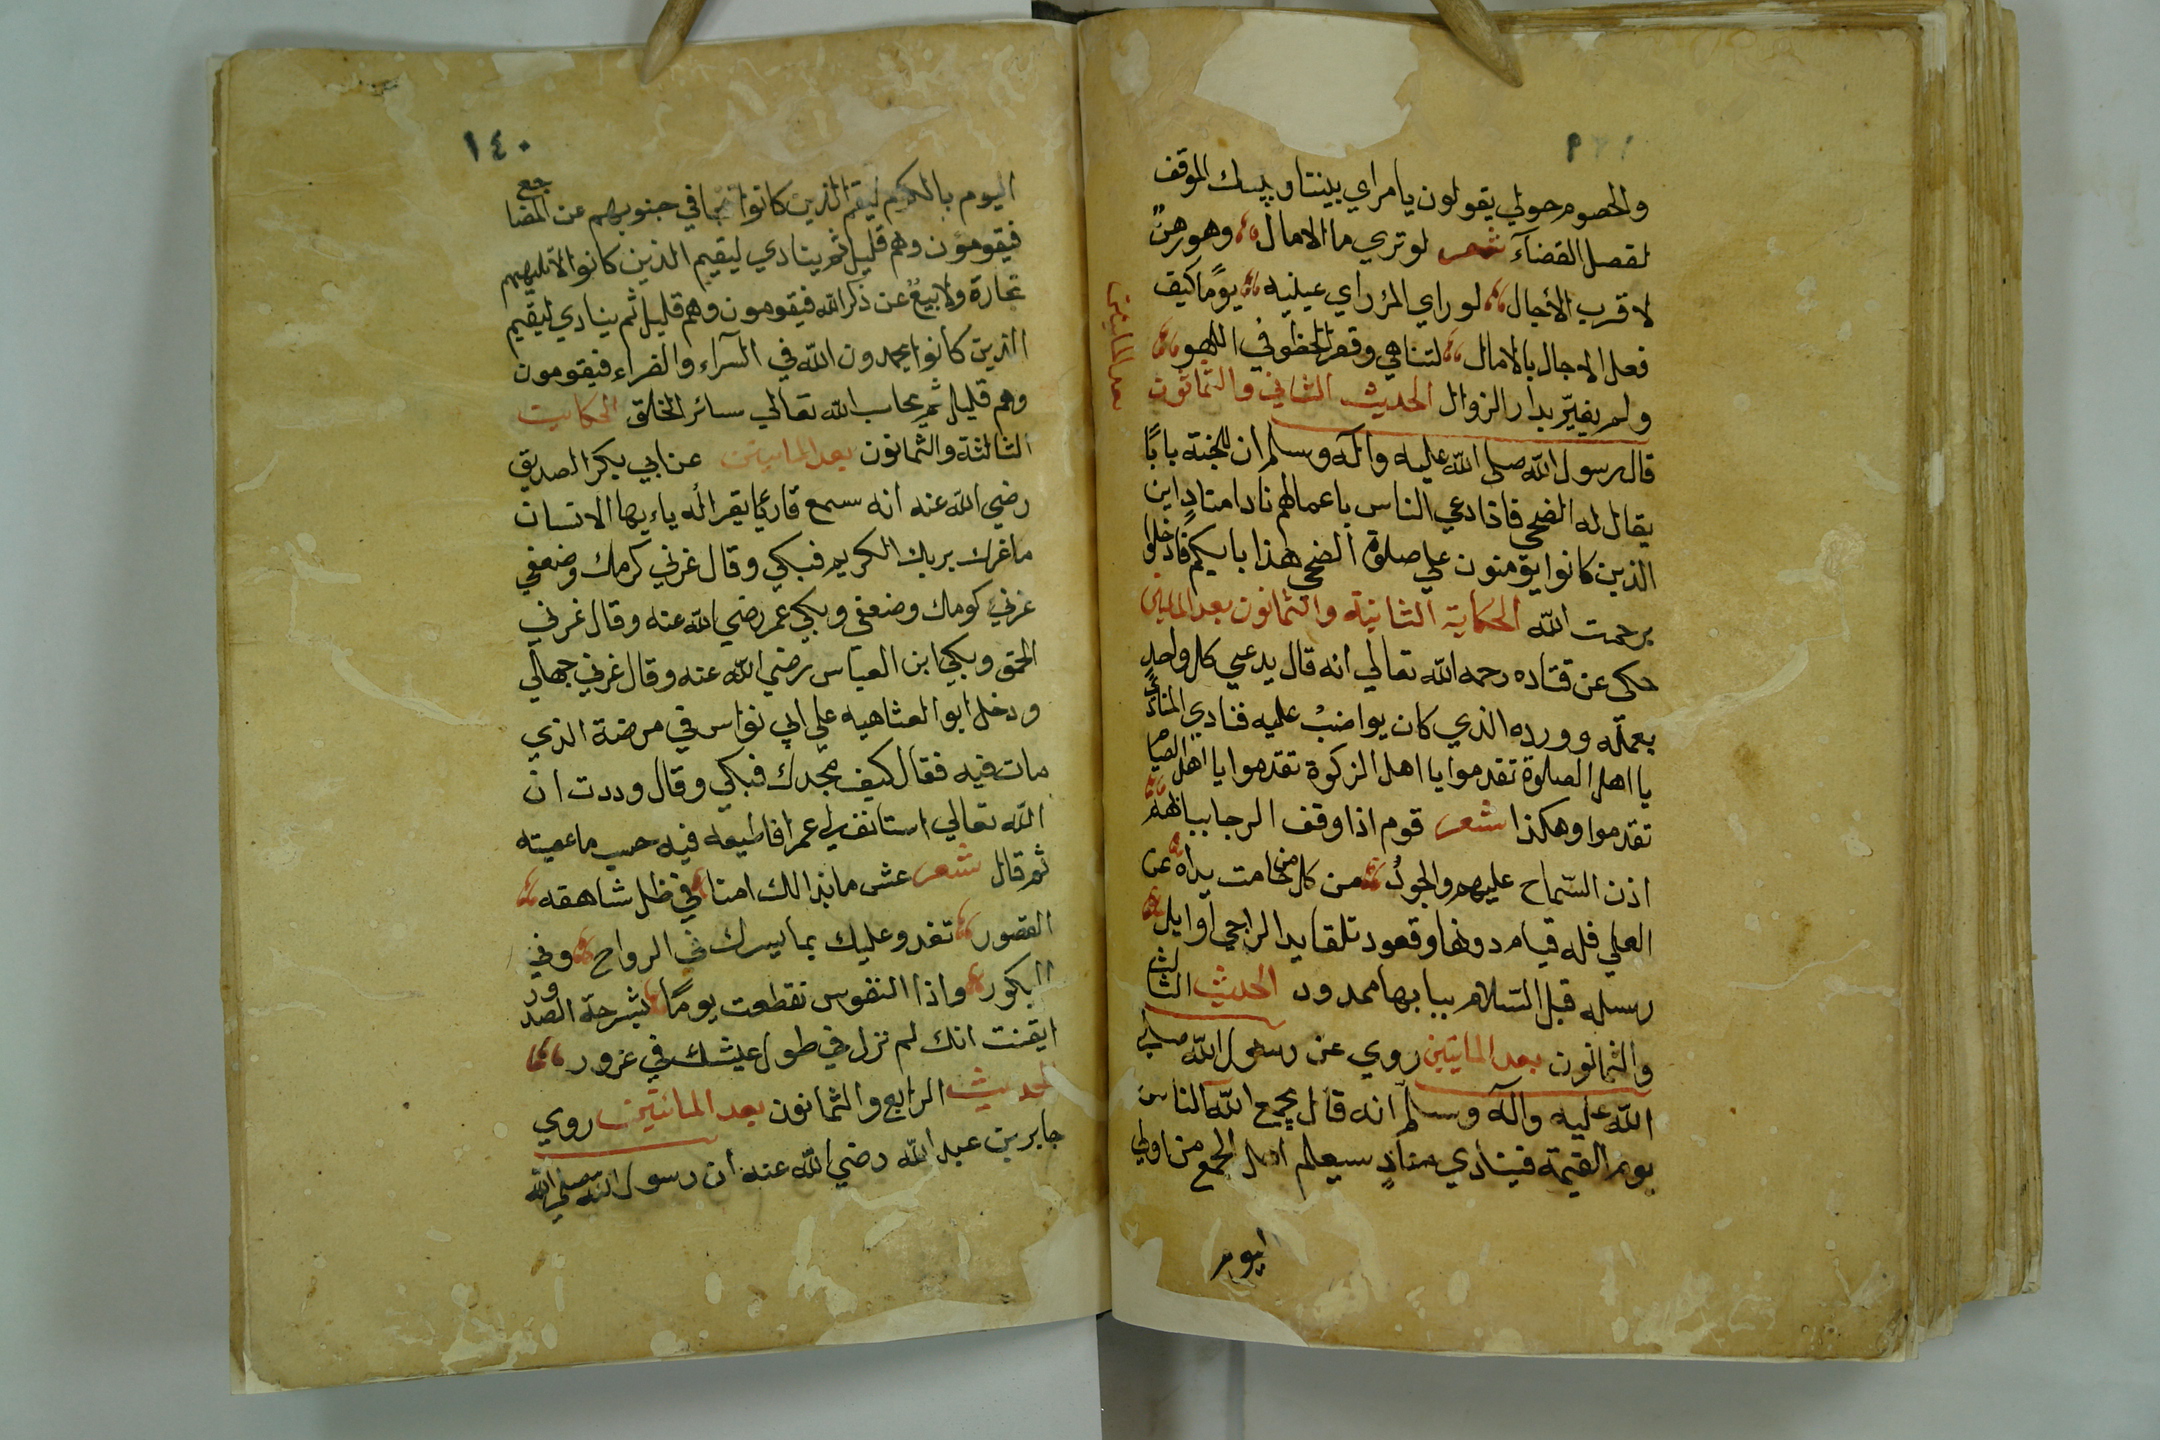 والخصوم حولي يقولون يا مراي بيننا وبينك الموقف
لفصل القضآء شعر لو تري ما الامال وهو رهنٌ
لا قرب الأجال لو راي المرٔ راي عينيه يومًا كيف
فعل الاجال بالامال لتناهي وقصر الخطو في اللهو
ولم يغتر بدار الزوال الحديث الثاني والثمانون
بعد المايتين
قال رسول الله صلى الله عليه وآله وسلم ان للجنة بابًا
يقال له الضحي فاذا دعي الناس باعمالهم نادا منادٍ اين
الذين كانوا يؤمنون علي صلوة الضحي هذا بابكم فادخلوا
برحمت الله الحكاية الثانية والثمانون بعد المايتين
حكى عن قتاده رحمه الله تعالي انه قال يدعي كل واحدٍ
بعمله وورده الذي كان يواضب عليه فنادي المنادي
يا اهل الصلوة تقدموا يا اهل الزكوة تقدموا يا اهل الصيام
تقدموا وهكذا شعر قوم اذا وقف الرجا ببابهم
اذن السّماح عليهم والجودُ من كل من خامت يداه عن
العلي فله قيام دونها وقعود تلقا يد الراجي أوايل
رسله قبل السّلام ببابها ممدود الحديث الثالث
والثمانون بعد المايتين روي عن رسول الله صلي
الله عليه وآله وسلم انه قال يجمع الله الناس
يوم القيمة فينادي منادٍ سيعلم اهل الجمع من اولي
اليوم
١٤٠
اليوم بالكرم ليقم الذين كانوا تتجافي جنوبهم عن المضاجع
فيقومون وهم قليل ثم ينادي ليقيم الذين كانوا لا تلهيهم
تجارة ولا بيعٌ عن ذكر الله فيقومون وهم قليل ثم ينادي ليقيم
الذين كانوا يحمدون الله في السرآء والضراء فيقومون
وهم قليل ثم يحاسب الله تعالي سائر الخلق الحكايت
الثالثة والثمانون بعد المايتين عن ابي بكر الصديق
رضي الله عنه انه سمع قاريًا يقرا له ياءيها الانسان
ما غرك بربك الكريم فبكي وقال غرني كرمك وضعفي
غرني كومك وضعفي وبكي عمر رضي الله عنه وقال غرني
الحمق وبكي ابن العباس رضي الله عنه وقال غرني جهالي
ودخل ابو العتاهيه علي ابي نواس في مرضة الذي
مات فيه فقال كيف تجدك فبكي وقال وددت ان
الله تعالي استانف لي عمرا فاطيعه فيه حسب ما عصيته
ثم قال شعر عش ما بدا لك امنا في ظل شاهقه
القصور تغدو عليك بما يسرك في الرواح وفي
البكور واذا النفوس نقطعت يومًا بشرحة الصدور
ايقنت انك لم تزل في طول عيشك في غرور
الحديث الرابع والثمانون بعد المائتين روي
جابر بن عبد الله رضي الله عنه ان رسول الله صلي الله